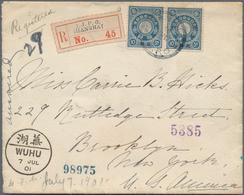 Registered
29
I.P.O.
SHANGHAI
R
No. 45
Miss Carrie B. Hicks,
229 Rutledge Street,
Brooklyn
New York,
U.S. America
5385
蕪湖
WUHU
7 JUL
01
98975
July 7. 1901